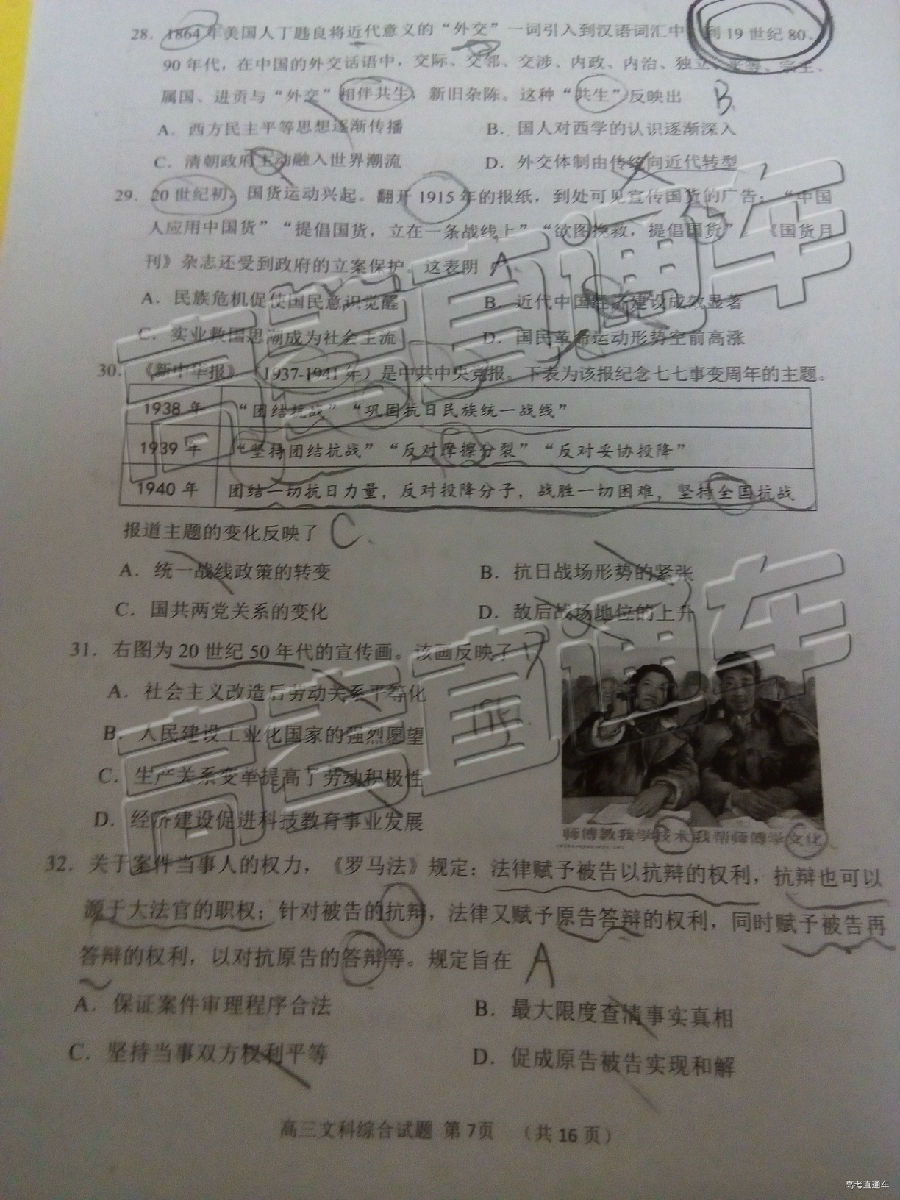 28. 1864年美国人丁韪良将近代意义的“外交”一词引入到汉语词汇中 到19世纪80、
90年代，在中国的外交话语中，交际、交邻、交涉、内政、内治、独立、平等、宗主、
属国、进贡与“外交”相伴共生，新旧杂陈。这种“共生”反映出 B
A．西方民主平等思想逐渐传播 B．国人对西学的认识逐渐深入
C．清朝政府主动融入世界潮流 D．外交体制由传统向近代转型
29．20世纪初，国货运动兴起。翻开1915年的报纸，到处可见宣传国货的广告：“中国
人应用中国货”“提倡国货，立在一条战线上”“欲图挽救，提倡国货” 《国货月
刊》杂志还受到政府的立案保护。这表明 A
A．民族危机促使国民意识觉醒 B．近代中国 建设成效显著
C．实业救国思潮成为社会主流 D．国民革命运动形势空前高涨
30．《新中华报》（1937-1941年）是中共中央党报。下表为该报纪念七七事变周年的主题。
1938年 “团结抗战”“巩固抗日民族统一战线”
1939年 “坚持团结抗战”“反对摩擦分裂”“反对妥协投降”
1940年 团结一切抗日力量，反对投降分子，战胜一切困难，坚持全国抗战
报道主题的变化反映了 C
A．统一战线政策的转变 B．抗日战场形势的紧张
C．国共两党关系的变化 D．敌后战场地位的上升
31．右图为20世纪50年代的宣传画。该画反映了
A．社会主义改造后劳动关系平等化
B．人民建设工业化国家的强烈愿望
C．生产关系变革提高了劳动积极性
D．经济建设促进科技教育事业发展
师傅教我学技术 我帮师傅学文化
32．关于案件当事人的权力，《罗马法》规定：法律赋予被告以抗辩的权利，抗辩也可以
源于大法官的职权；针对被告的抗辩，法律又赋予原告答辩的权利，同时赋予被告再
答辩的权利，以对抗原告的答辩等。规定旨在 A
A．保证案件审理程序合法 B．最大限度查清事实真相
C．坚持当事双方权利平等 D．促成原告被告实现和解
高三文科综合试题 第7页 （共16页）
高考直通车
高考直通车
高考直通车